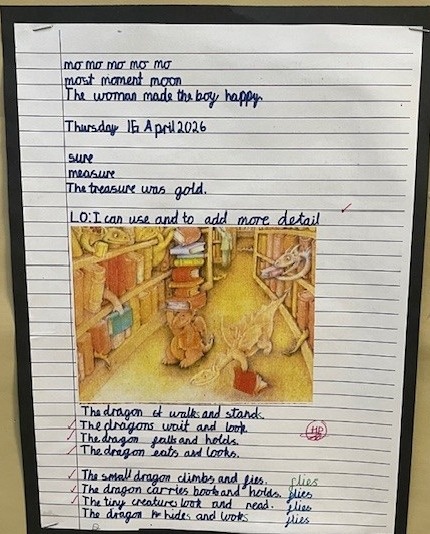 mo mo mo mo mo
most moment moon
The woman made the boy happy.
Thursday 16 April 2026
sure
measure
The treasure was gold.
LO: I can use and to add more detail
The dragon walk and stands.
The dragons wait and look
The dragon falls and holds.
The dragon eats and looks.
HP
The small dragon climbs and fies. flies
The dragon carries book and holds. flies
The tiny creature look and read. flies
The dragon hides and looks flies